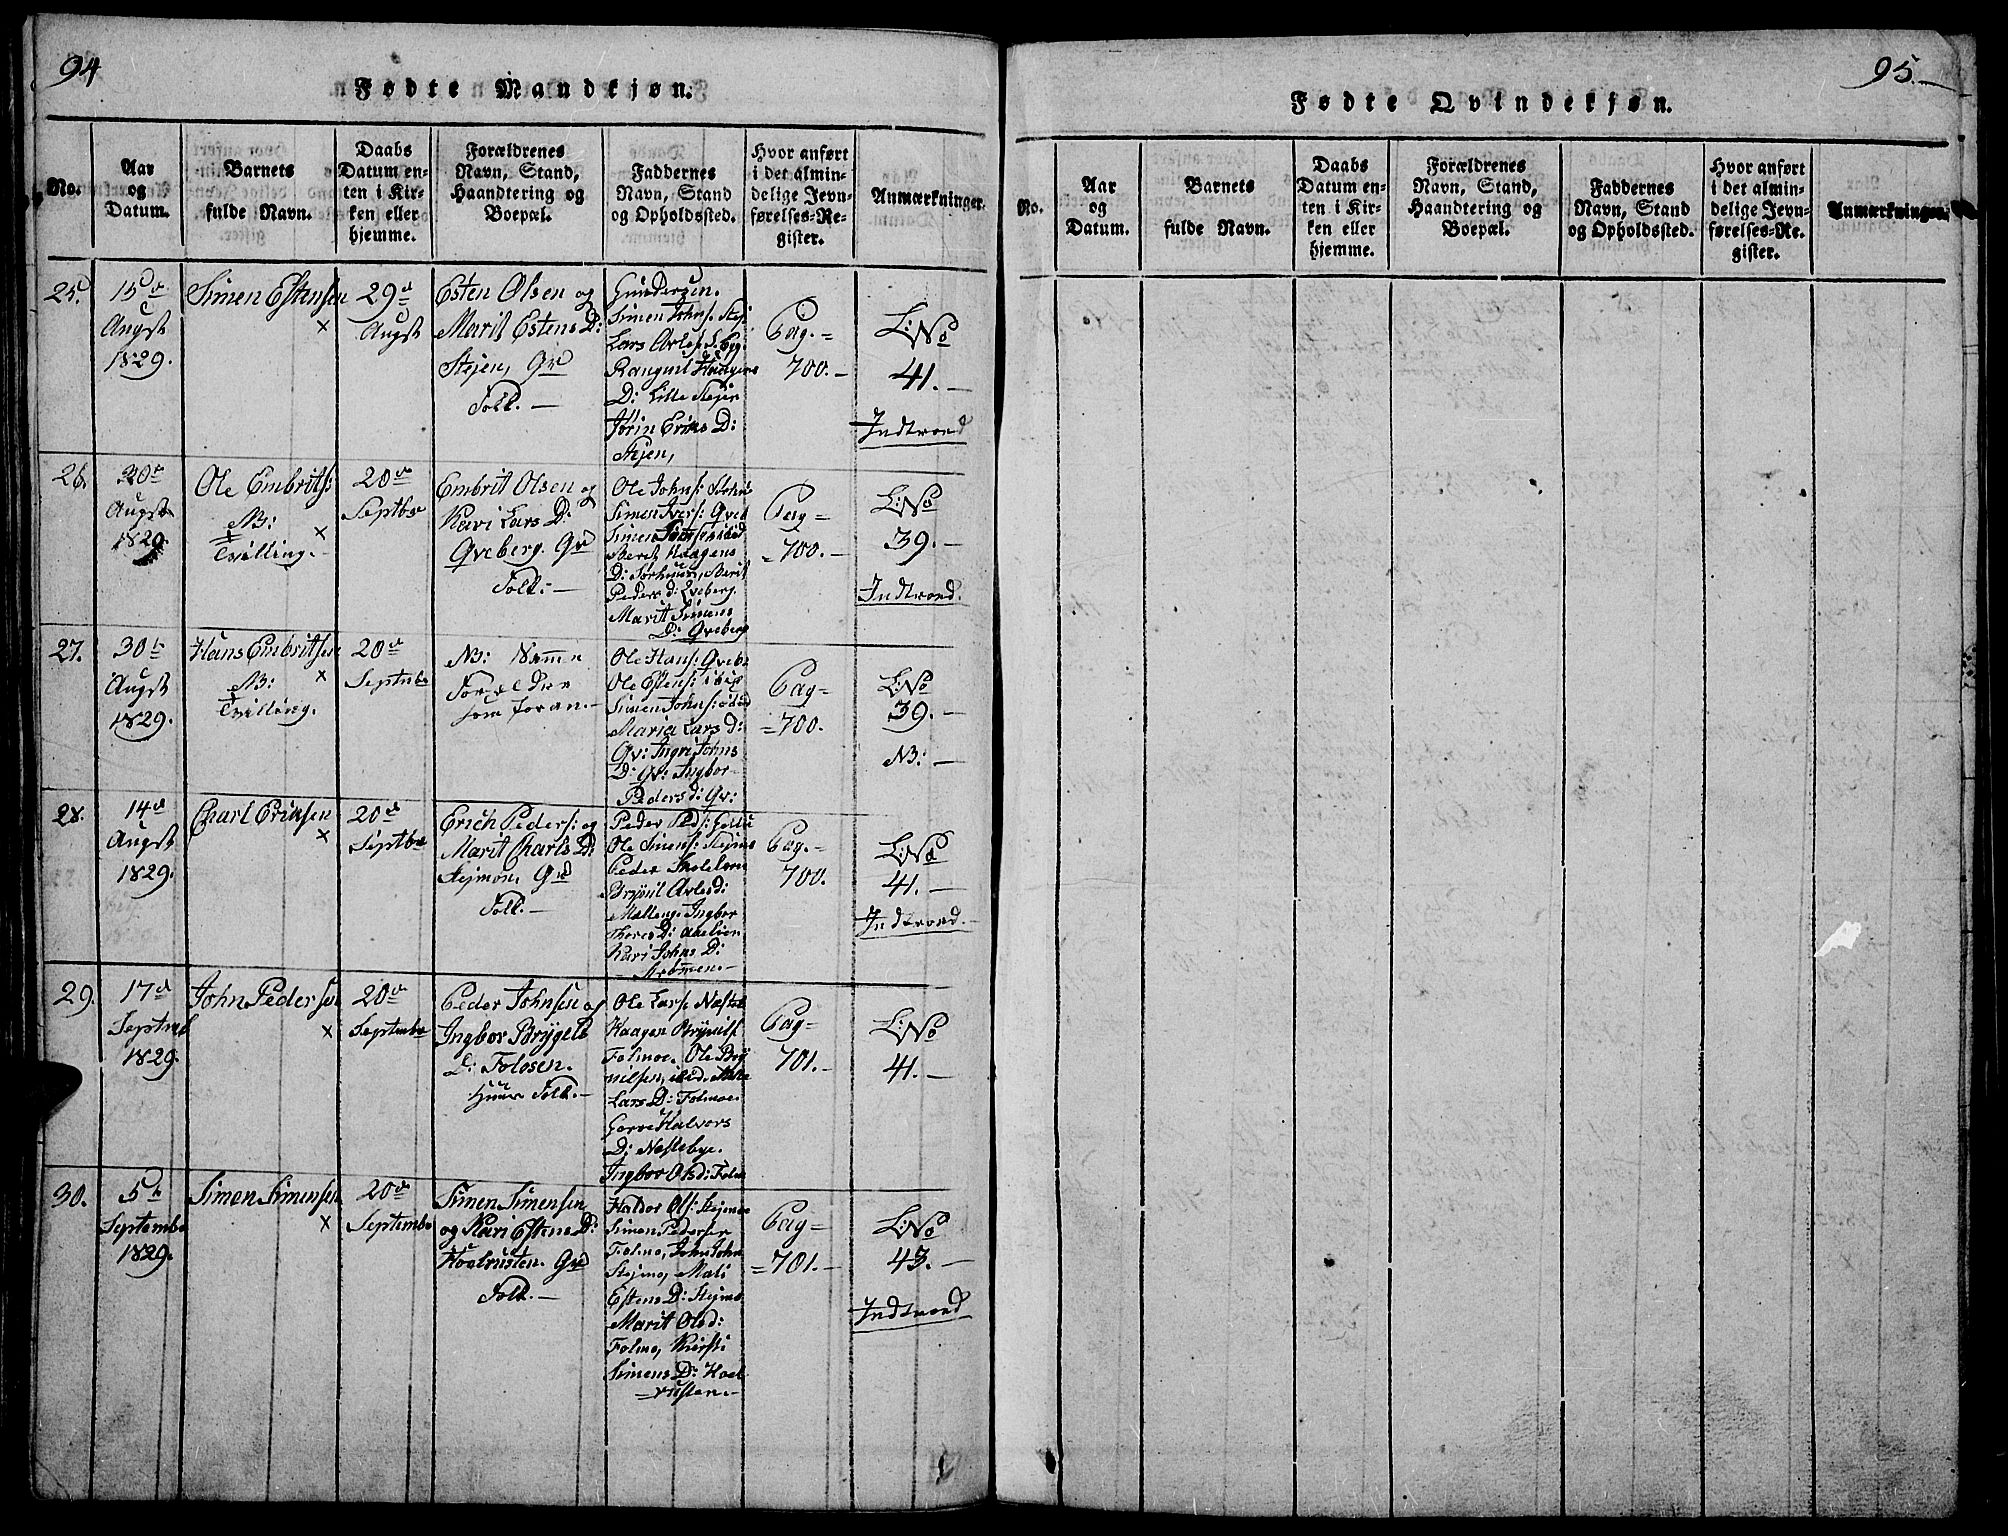 94
Fødte Mandkjøn.
No.
Aar
og
Datum.
Barnets
fulde Navn.
Daabs
Datum en-
ten i Kir-
ken eller
hjemme.
Forældrenes
Navn, Stand,
Haandtering og
Boepæl.
Faddernes
Navn, Stand
og Opholdssted.
Hvor anført
i det almin-
delige Jevn-
førelses-Re-
gister.
Anmærkninger.
25.
15de
Augst
1829.
Simen Estensen
×
29de
Augst
Esten Olsen og
Marit Estens D:
Stejen, Grd
Folk. —
Gundersen.
Simen Johns: Stej:
Lars
Rangnil Haagens
D: Lille Stejen
Jørin Eriks D:
Stejen,
Pag. =
700. —
L: No
41. —
Indtroed
26.
30te
Augst
1829.
Ole Embrits:
NB:
×
Tvilling. —
20de
Septbr
Embrit Olsen og
Kari Lars D:
Qveberg. Grd
Folk: —
Ole Johns:
Simen Ivers: Qveb
Simen
Berit Haagens
D: Berit
Peders d: Qveberg.
Marit Simens
D: Qveberg
Pag =
= 700. —
L: No
39. —
Indtroed.
27.
30te
Augst
1829.
Hans Embritsen
NB: ×
Tvilling.
20de
Septmbr
NB: Samme
Forældre
som foran. —
Ole Hans: Qveb:
Ole Estens: ibid
Simen Johns: ibid
Maria Lars d:
Qv: Ingri Johns
D: Qv: Ingbor —
Peders d: Qv:
Pag =
= 700.
L: No
39. —
NB: —
28.
14de
Augst
1829.
Charl Eriksen
×
20de
Septbr
Erich Peders: og
Marit Charls D:
Stejmoe, Grd
Folk. —
Peder Peds:
Ole Simens: Stejmo
Peder
Brynil Arles d:
Mælling. Ingbor
Thores D:
Kari Johns D:
— Strømmen. —
Pag. —
700.
L: No
41. —
Indtroed. —
29.
17de
Septmb
1829.
John Pedersen
×
20de
Septmbr
Peder Johnsen og
Ingbor Brygels
D: Folosen.
Huus Folk. —
Ole Lars: Næsteb
Haagen Brynils
Folmoe. Ole Bry
nilsen, ibid.
Lars D: Folmoe.
Halvors
D: Næstebye.
Ingbor Ols d: Folm
Pag =
701. —
L: No
41. —
30.
5te
Septembr
1829.
Simen Simensen
×
20de
Septembr
Simen Simensen
og Kari Estens D:
Hoelrusten. Grd
Folk. —
Haldor Ols: Stejmoe
Simen Pedersen
Folmo, John John
Stejmo, Mali
Estens D: Stejmo
Marit Ols d:
Folmo, Kirsti
Simens D: Hoel
= rusten. —
Pag =
= 701. —
L: No
43. —
Indtroed
95. —
Fødte Qvindekjøn.
No.
Aar
og
Datum.
Barnets
fulde Navn.
Daabs
Datum en-
ten i Kir-
ken eller
hjemme.
Forældrenes
Navn, Stand,
Haandtering og
Boepæl.
Faddernes
Navn, Stand
og Opholdssted.
Hvor anført
i det almin-
delige Jevn-
førelses-Re-
gister.
Anmærkninger.